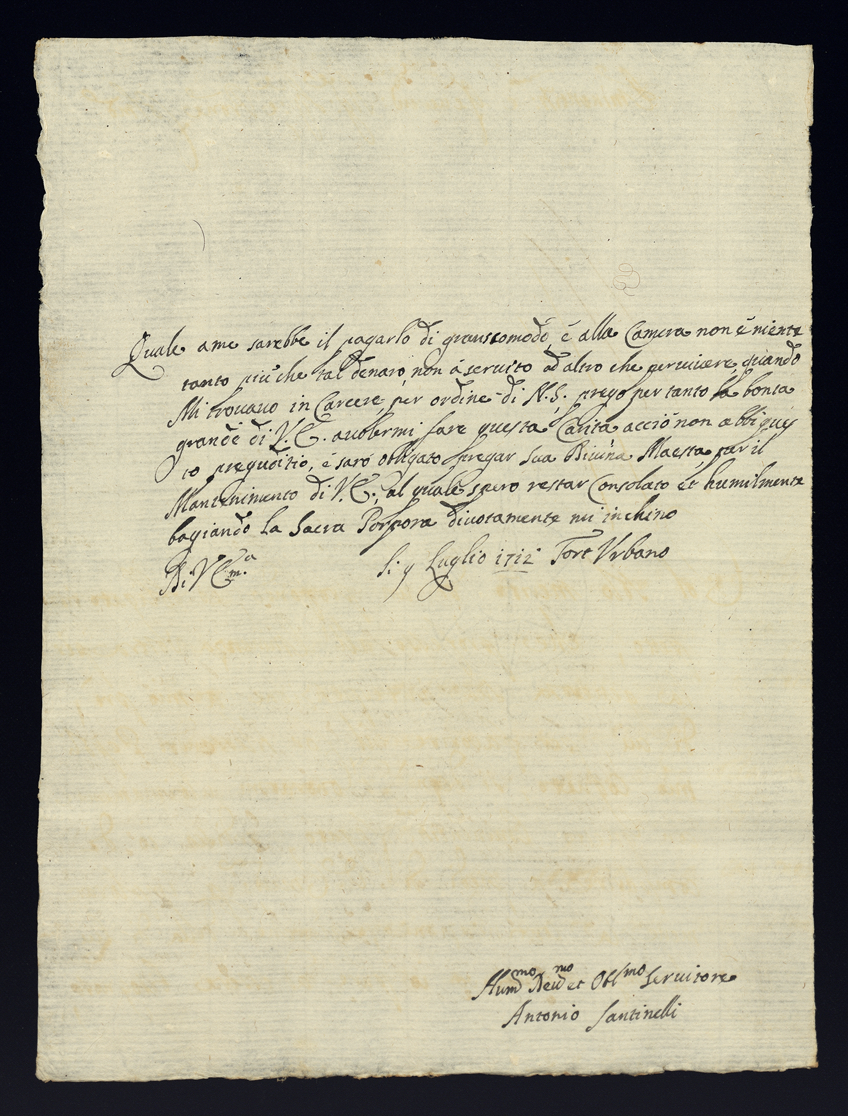 Quale ame sarebbe il pagarlo di granscomodo, é alla Camera non é niente
tanto piu' che tal denaro non á servito ad altro che per vivere quando
Mi trovavo in Carcere per ordine di N.S. prego per tanto la bonta
grande di V.E. avolermi fare questa Carita acció non abbi ques
to pregiuditio, é saró obligato pregar Sua Divina Maesta per il
Mantenimento di V.E., al quale spero restar Consolato et humilmente
bagiando la Sacra Porpora divotamente mi inchino
Di V.Em.a Li 9 Luglio 1712 Fort Urbano
Hum.mo Dev.mo et Obl.mo Servitore
Antonio Santinelli